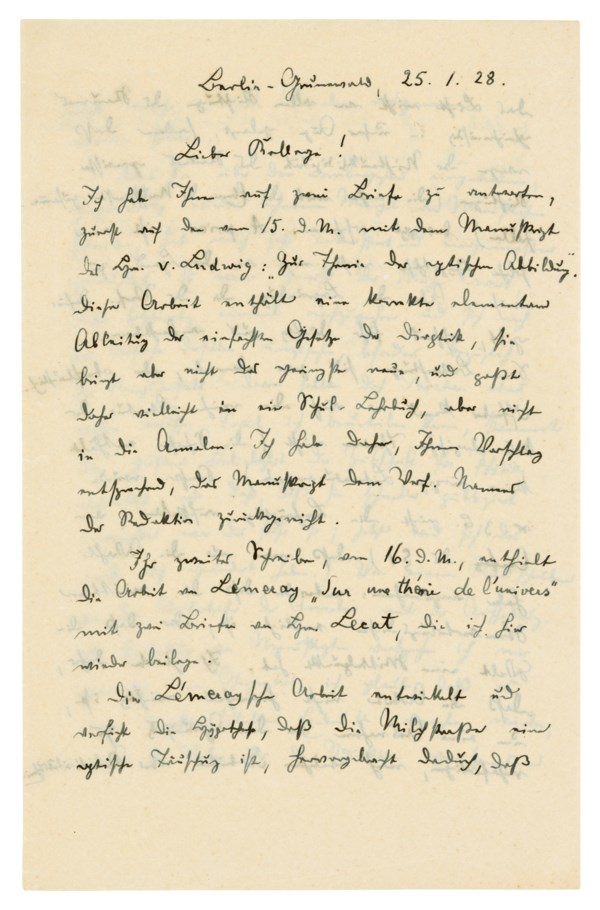 Berlin-Grunewald, 25. 1. 28.
Lieber Kollege!
Ich habe Ihnen auf zwei Briefe zu antworten,
zuerst auf den vom 15. d. M. mit dem Manuskript
des Hrn. v. Ludwig: „Zur Theorie der optischen Abbildung“.
Diese Arbeit enthält eine korrekte elementare
Ableitung der einfachsten Gesetze der Dioptrik, sie
bringt aber nicht das geringste neue, und paßt
daher vielleicht in ein Schul-Lehrbuch, aber nicht
in die Annalen. Ich habe daher, Ihrem Vorschlag
entsprechend, das Manuskript dem Verf. Namens
der Redaktion zurückgereicht.
Ihr zweites Schreiben, vom 16. d. M., enthielt
die Arbeit von Lémeray „Sur une théorie de l'univers“
mit zwei Briefen von Hrn Lecat, die ich hier
wieder beilege.
Die Lémeraysche Arbeit entwickelt und
verficht die Hypothese, daß die Milchstraße eine
optische Täuschung ist, hervorgebracht dadurch, daß